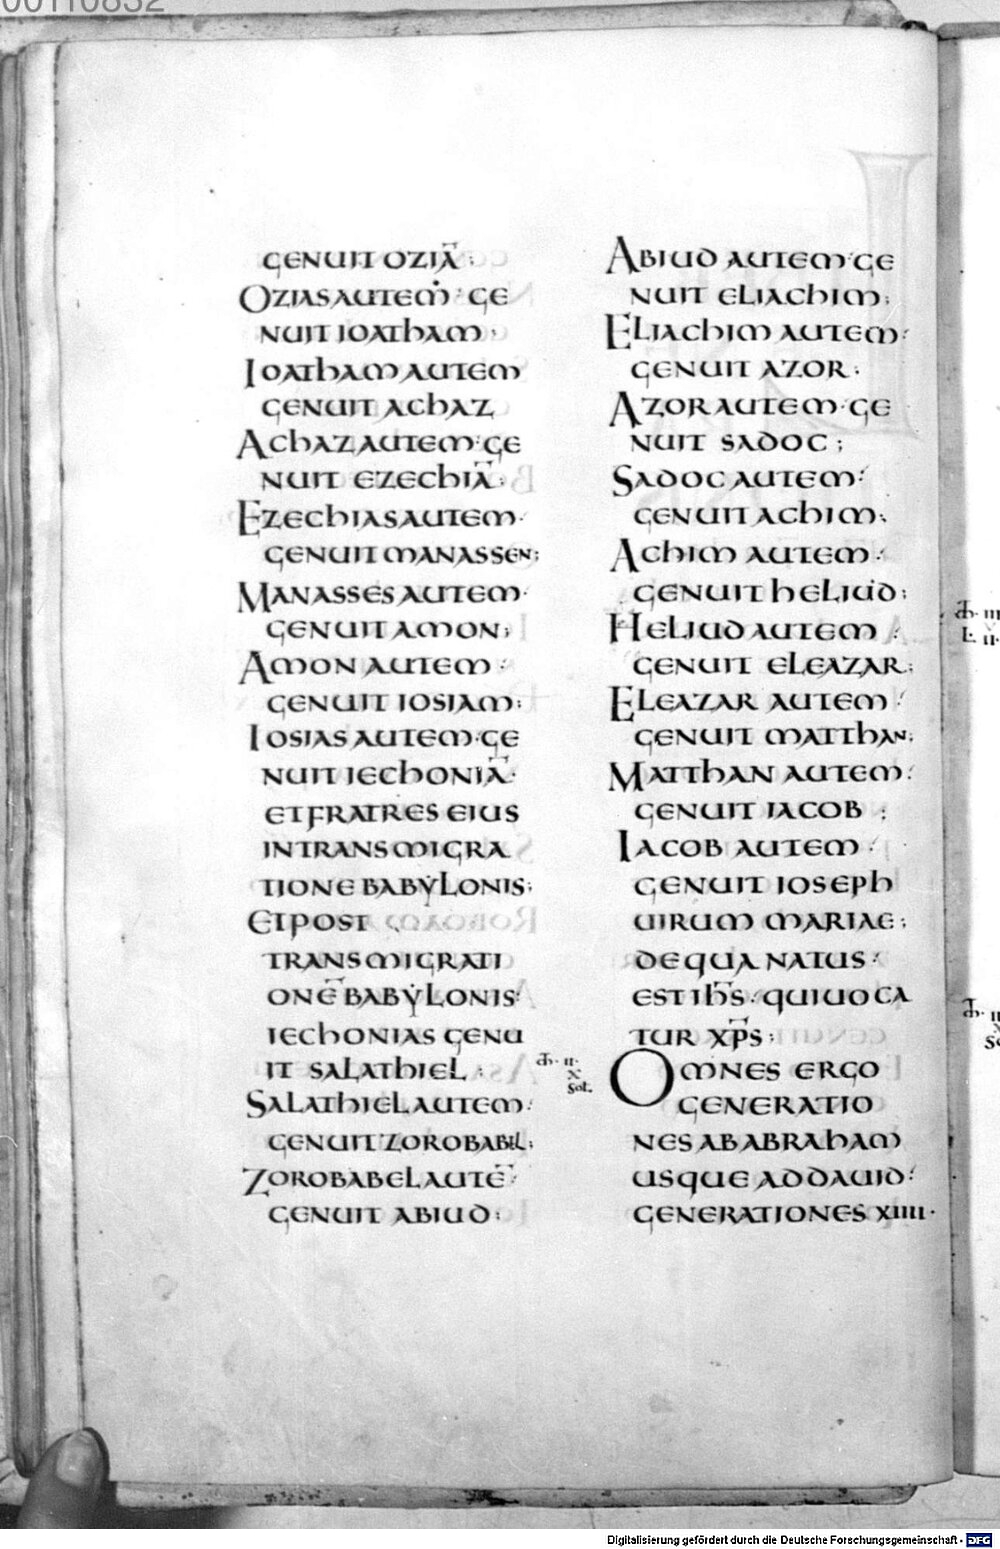 00110832
GENUIT OZIĀ·
OZIAS AUTEM· GE
NUIT IOATHAM·
IOATHAM AUTEM
GENUIT ACHAZ
ACHAZ AUTEM· GE
NUIT EZECHIĀ·
EZECHIAS AUTEM·
GENUIT MANASSEN;
MANASSES AUTEM·
GENUIT AMON;
AMON AUTEM:
GENUIT IOSIAM;
IOSIAS AUTEM· GE
NUIT IECHONIĀ·
ET FRATRES EIUS
IN TRANSMIGRA
TIONE BABYLONIS;
ET POST
TRANSMIGRATI
ONĒ BABYLONIS·
IECHONIAS GENU
IT SALATHIEL·
SALATHIEL AUTEM:
GENUIT ZOROBABEL;
ZOROBABEL AUTĒ:
GENUIT ABIUD;
ABIUD AUTEM· GE
NUIT ELIACHIM;
ELIACHIM AUTEM:
GENUIT AZOR;
AZOR AUTEM· GE
NUIT SADOC;
SADOC AUTEM:
GENUIT ACHIM;
ACHIM AUTEM:
GENUIT HELIUD;
HELIUD AUTEM:
GENUIT ELEAZAR;
ELEAZAR AUTEM:
GENUIT MATTHAN;
MATTHAN AUTEM:
GENUIT IACOB;
IACOB AUTEM:
GENUIT IOSEPH
UIRUM MARIAE;
DE QUA NATUS:
EST IH̄S· QUI UOCA
TUR XP̄S;
II·
X
Sol.
OMNES ERGO
GENERATIO
NES AB ABRAHAM
USQUE AD DAUID:
GENERATIONES XIIII·
Digitalisierung gefördert durch die Deutsche Forschungsgemeinschaft - DFG